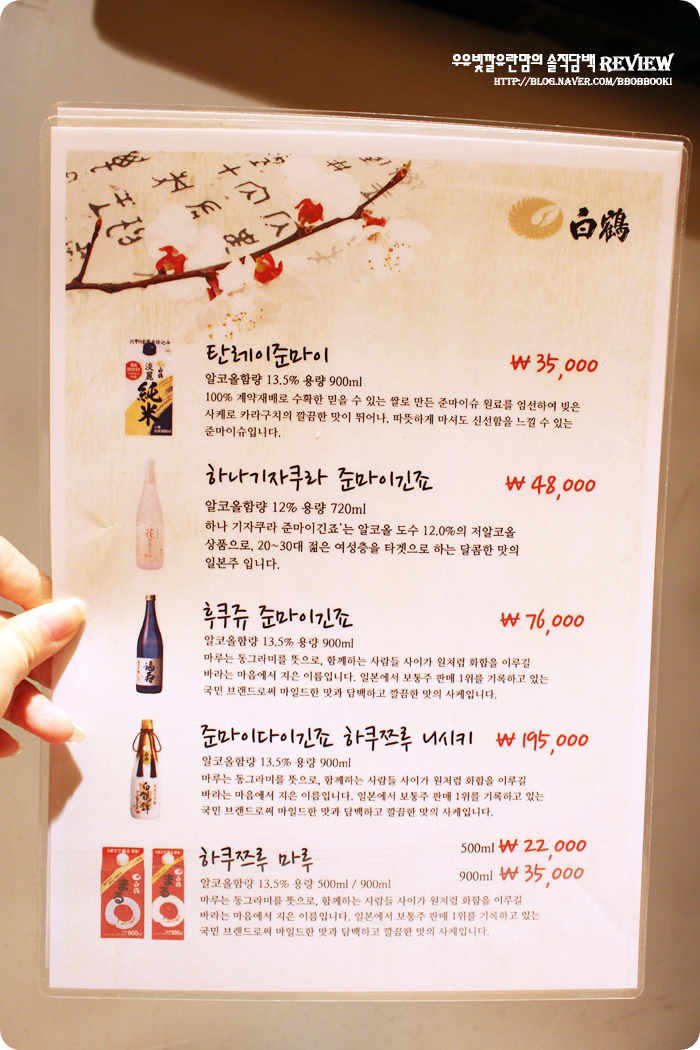 우유빛깔우란맘의 솔직담백 REVIEW
HTTP://BLOG.NAVER.COM/BBOBBOOKI
白鶴
탄레이준마이
₩ 35,000
알코올함량 13.5% 용량 900ml
100% 계약재배로 수확한 믿을 수 있는 쌀로 만든 준마이슈 원료를 엄선하여 빚은
사케로 카라구치의 깔끔한 맛이 뛰어나, 따뜻하게 마셔도 신선함을 느낄 수 있는
준마이슈입니다.
淡麗
純米
하나기자쿠라 준마이긴죠
₩ 48,000
알코올함량 12% 용량 720ml
하나 기자쿠라 준마이긴죠'는 알코올 도수 12.0%의 저알코올
상품으로, 20~30대 젊은 여성층을 타겟으로 하는 달콤한 맛의
일본주 입니다.
후쿠쥬 준마이긴죠
₩ 76,000
알코올함량 13.5% 용량 900ml
마루는 동그라미를 뜻으로, 함께하는 사람들 사이가 원처럼 화합을 이루길
바라는 마음에서 지은 이름입니다. 일본에서 보통주 판매 1위를 기록하고 있는
국민 브랜드로써 마일드한 맛과 담백하고 깔끔한 맛의 사케입니다.
福寿
준마이다이긴죠 하쿠쯔루 니시키
₩ 195,000
알코올함량 13.5% 용량 900ml
마루는 동그라미를 뜻으로, 함께하는 사람들 사이가 원처럼 화합을 이루길
바라는 마음에서 지은 이름입니다. 일본에서 보통주 판매 1위를 기록하고 있는
국민 브랜드로써 마일드한 맛과 담백하고 깔끔한 맛의 사케입니다.
白鶴錦
하쿠쯔루 마루
500ml ₩ 22,000
900ml ₩ 35,000
알코올함량 13.5% 500ml / 900ml
마루는 동그라미를 뜻으로, 함께하는 사람들 사이가 원처럼 화합을 이루길
바라는 마음에서 지은 이름입니다. 일본에서 보통주 판매 1위를 기록하고 있는
국민 브랜드로써 마일드한 맛과 담백하고 깔끔한 맛의 사케입니다.
まる
まる